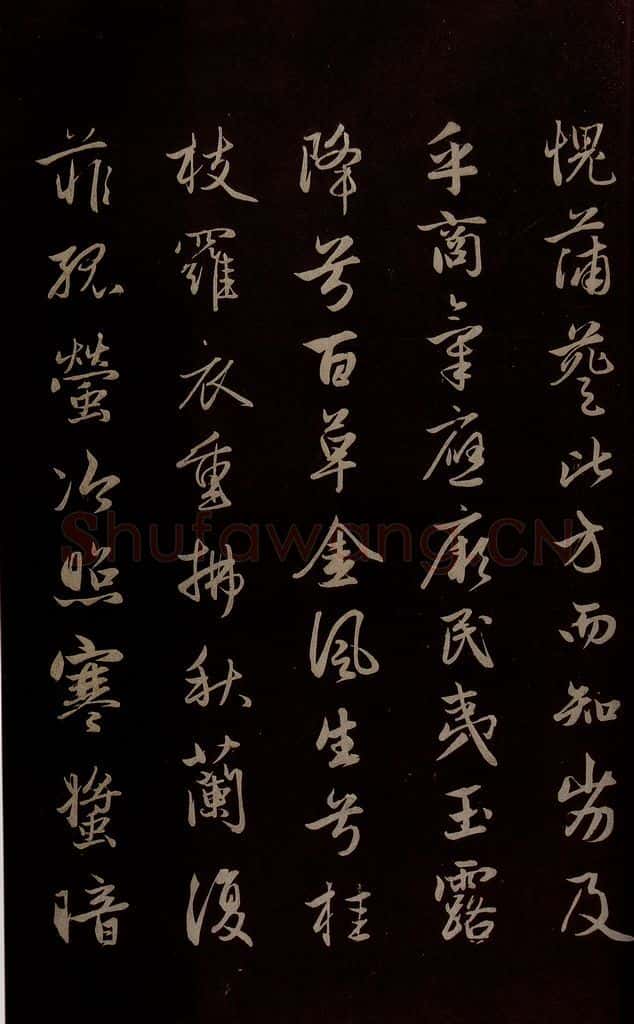 愧蒲葵此方而知劣及
乎商氣應厥民夷玉露
降兮百草金風生兮桂
枝羅衣重拂秋蘭復
菲孤螢冷照寒螿暗
Shufawang.CN